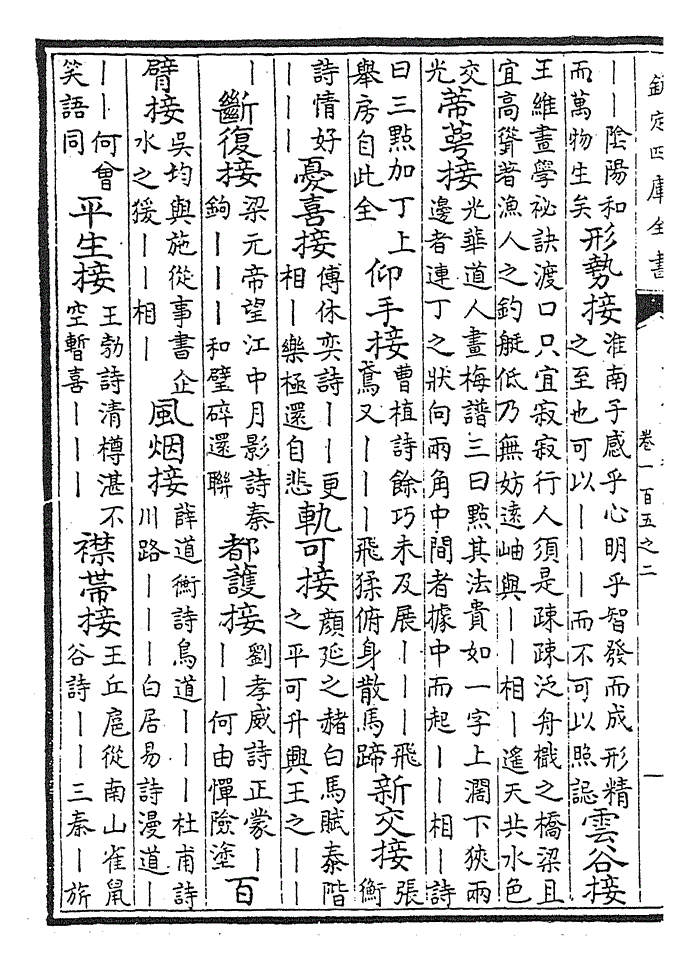 欽定四庫全書
卷一百五之二
一
丨丨陰陽和
而萬物生矣
形勢接
淮南子感乎心明乎智發而成形精
之至也可以丨丨丨而不可以照誋
雲谷接
王維畫學祕訣渡口只宜寂寂行人須是疎疎泛舟檝之橋梁且
宜高聳著漁人之釣艇低乃無妨遠岫與丨丨相丨遙天共水色
交
光
蔕萼接
光華道人畫梅譜三曰點其法貴如一字上濶下狹兩
邊者連丁之狀向兩角中間者據中而起丨丨相丨詩
曰三點加丁上
舉房自此全
仰手接
曹植詩餘巧未及展丨丨丨飛
鳶又丨丨丨飛猱俯身散馬蹄
新交接
張
衡
詩情好
丨丨丨
憂喜接
傅休奕詩丨丨更
相丨樂極還自悲
軌可接
顔延之赭白馬賦泰階
之平可升興王之丨丨
丨
斷復接
梁元帝望江中月影詩秦
鉤丨丨丨和璧碎還聯
都護接
劉孝威詩正蒙丨
丨丨何由憚險塗
百
臂接
吳均與施從事書企
水之猨丨丨相丨
風烟接
薛道衡詩鳥道丨丨丨杜甫詩
川路丨丨丨白居易詩漫道丨
丨丨何曾
笑語同
平生接
王勃詩清樽湛不
空暫喜丨丨丨
襟帶接
王丘扈從南山雀鼠
谷詩丨丨三秦丨旂